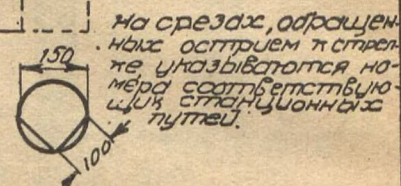 На срезах, обращен-
ных острием к стрел-
ке, указываются но-
мера соответствую-
щих станционных
путей.
150
100